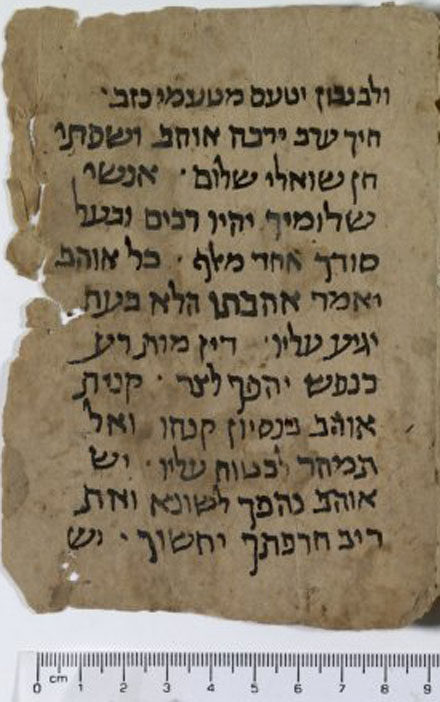 ולב נבון יטעם מטעמי כזב ·
חיך ערב ירבה אוהב ושפתי
חן שואלי שלום · אנשי
שלומיך יהיו רבים ובעל
סודך אחד מאלף · כל אוהב
יאמר אהבתי הלא בעת
יגיע עליו · דין מות רע
כנפש יהפך לצר · קנית
אוהב בנסיון קנהו ואל
תמהר לבטוח עליו · יש
אוהב נהפך לשונא ואת
ריב חרפתך יחשוף · יש
cm
0 1 2 3 4 5 6 7 8 9